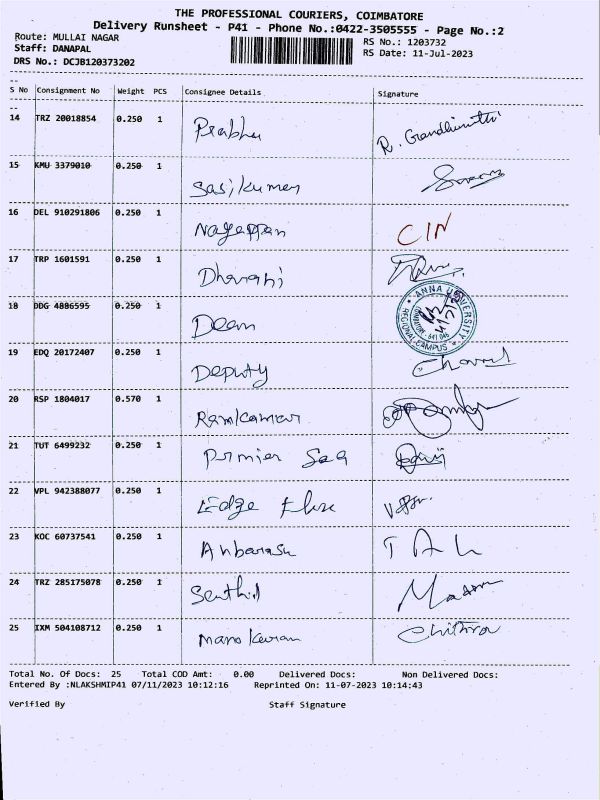 THE PROFESSIONAL COURIERS, COIMBATORE
Delivery Runsheet - P41 - Phone No.:0422-3505555 - Page No.:2
Route: MULLAI NAGAR RS No.: 1203732
Staff: DANAPAL RS Date: 11-Jul-2023
DRS No.: DCJB120373202
S No Consignment No Weight PCS Consignee Details Signature
14 TRZ 20018854 0.250 1 Prabhu
15 KMU 3379010 0.250 1 Sasikumar
16 DEL 910291806 0.250 1 Nagappan CIN
17 TRP 1601591 0.250 1 Dharani
ANNA UNIVERSITY
REGIONAL CAMPUS
18 DDG 4886595 0.250 1 Dean
19 EDQ 20172407 0.250 1 Deputy
20 RSP 1804017 0.570 1 Ramkumar
21 TUT 6499232 0.250 1
22 VPL 942388077 0.250 1 Edge
23 KOC 60737541 0.250 1 Anbarasu
24 TRZ 285175078 0.250 1 Senthil
25 IXM 504108712 0.250 1 Chithra
Total No. Of Docs: 25 Total COD Amt: 0.00 Delivered Docs: Non Delivered Docs:
Entered By :NLAKSHMIP41 07/11/2023 10:12:16 Reprinted On: 11-07-2023 10:14:43
Verified By Staff Signature